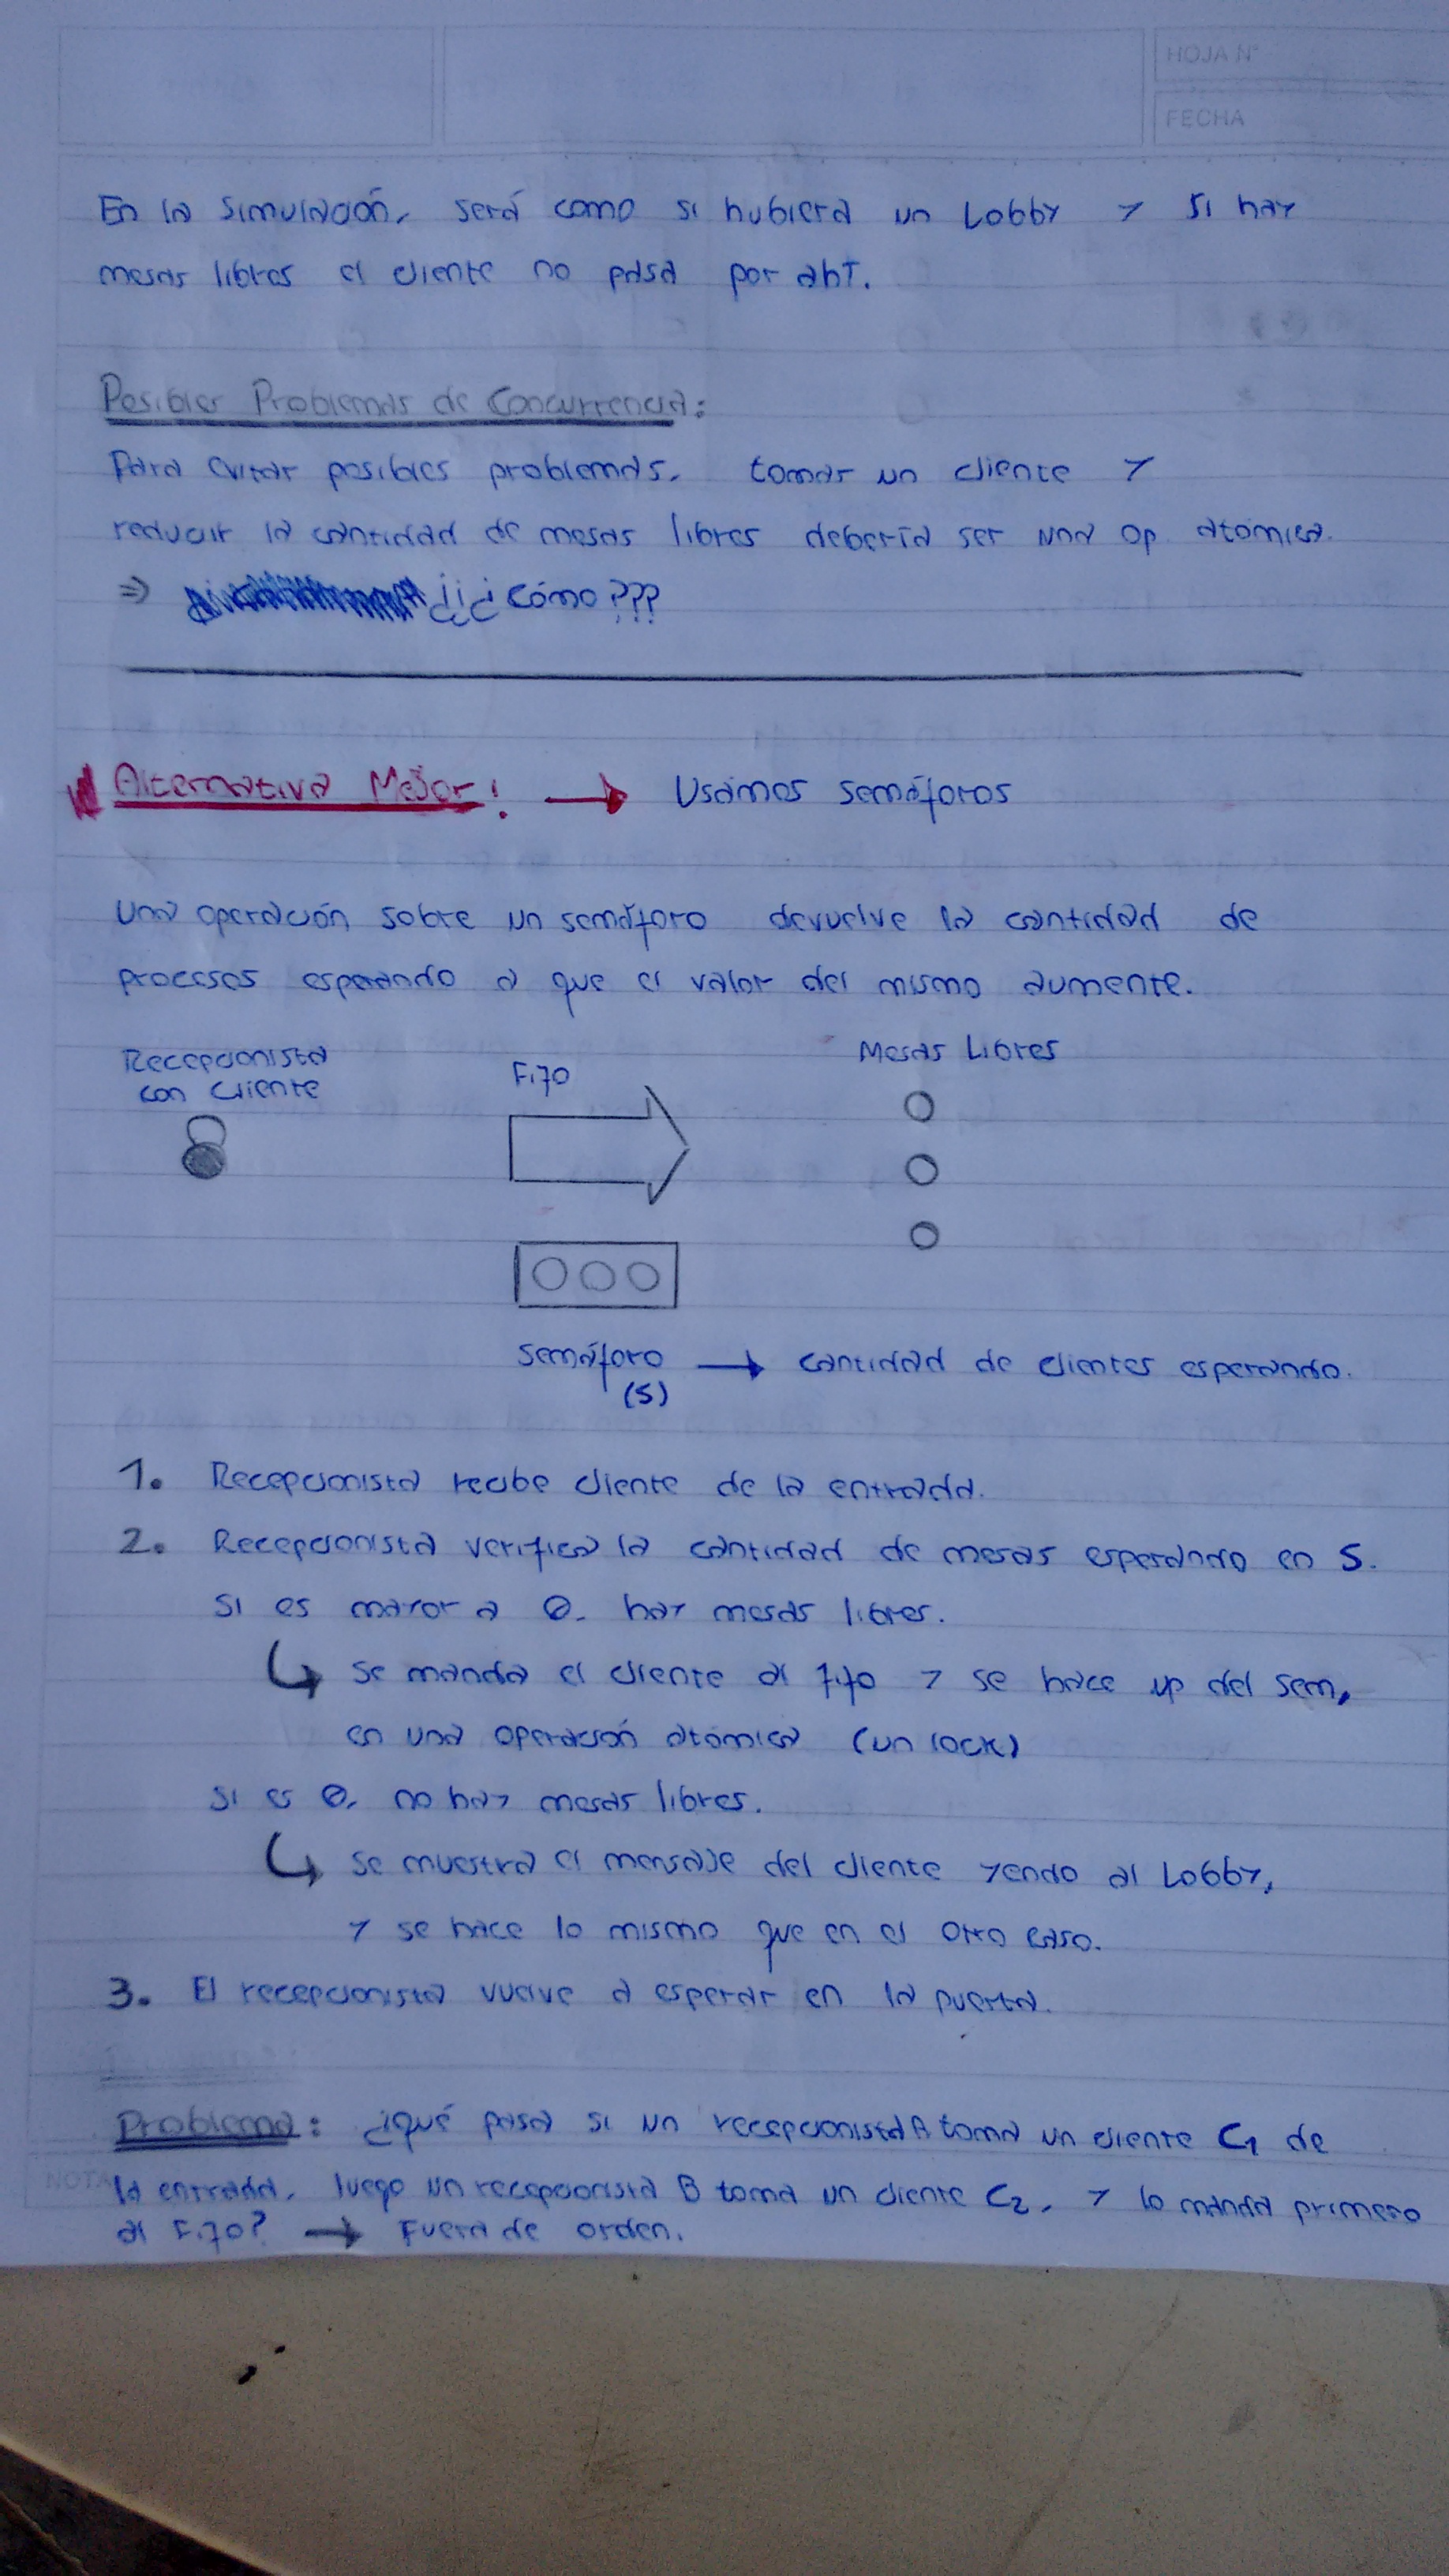 HOJA N°
FECHA
En la simulación, será como si hubiera un Lobby y si hay
mesas libres el cliente no pasa por ahí.
Posibles Problemas de Concurrencia:
Para evitar posibles problemas, tomar un cliente y
reducir la cantidad de mesas libres debería ser una op. atómica.
⇒ ¿¿¿Cómo???
Alternativa Mejor! → Usamos semáforos
Una operación sobre un semáforo devuelve la cantidad de
procesos esperando a que el valor del mismo aumente.
Recepcionista
con cliente
Fifo
Mesas Libres
Semáforo → cantidad de clientes esperando.
(S)
1. Recepcionista recibe cliente de la entrada.
2. Recepcionista verifica la cantidad de mesas esperando en S.
Si es mayor a 0, hay mesas libres.
↳ se manda el cliente al fifo y se hace up del sem,
en una operación atómica (un lock)
Si es 0, no hay mesas libres.
↳ se muestra el mensaje del cliente yendo al Lobby,
y se hace lo mismo que en el otro caso.
3. El recepcionista vuelve a esperar en la puerta.
Problema: ¿qué pasa si un recepcionista A toma un cliente C1 de
NOTA
la entrada, luego un recepcionista B toma un cliente C2, y lo manda primero
al Fifo? → Fuera de orden.